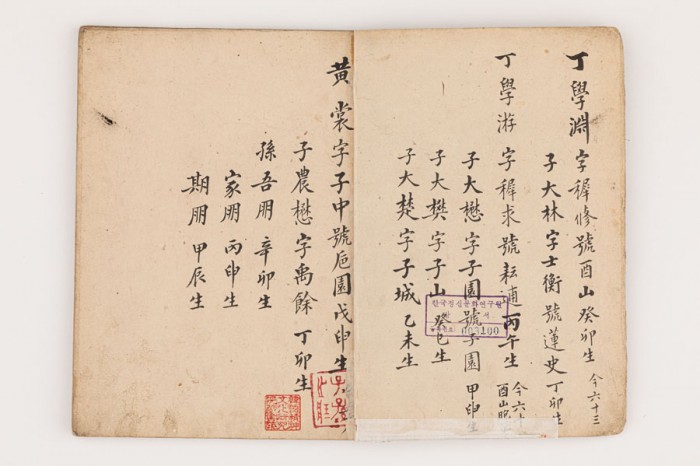 丁學淵 字穉修號酉山 癸卯生 今六十三
子大林字士衡號蓮史丁卯生
丁學游 字穉求號耘逋丙午生 今六十
酉山
子大懋字子園號子園甲申生
子大樊字子山癸巳生
子大楚字子城乙未生
한국정신문화연구원
003100
黃裳字子中號巵園戊申生
子農懋字禹餘 丁卯生
孫吾朋 辛卯生
家朋 丙申生
期朋 甲辰生